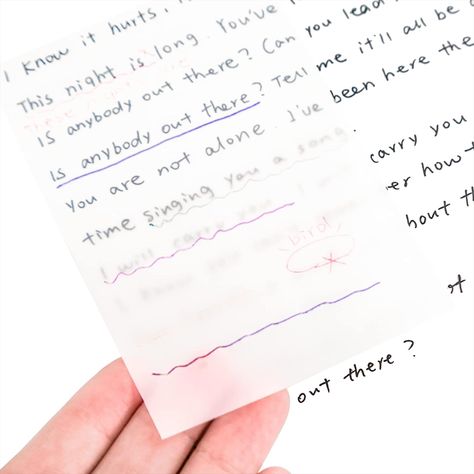 I know it hurts, i
This night is long. You've
Is anybody out there? Can you lead
Is anybody out there? Tell me it'll all be
You are not alone. I've been here the
time singing you a song.
I will carry you carry you
I know you er how t
bout th
bird
st
out there?